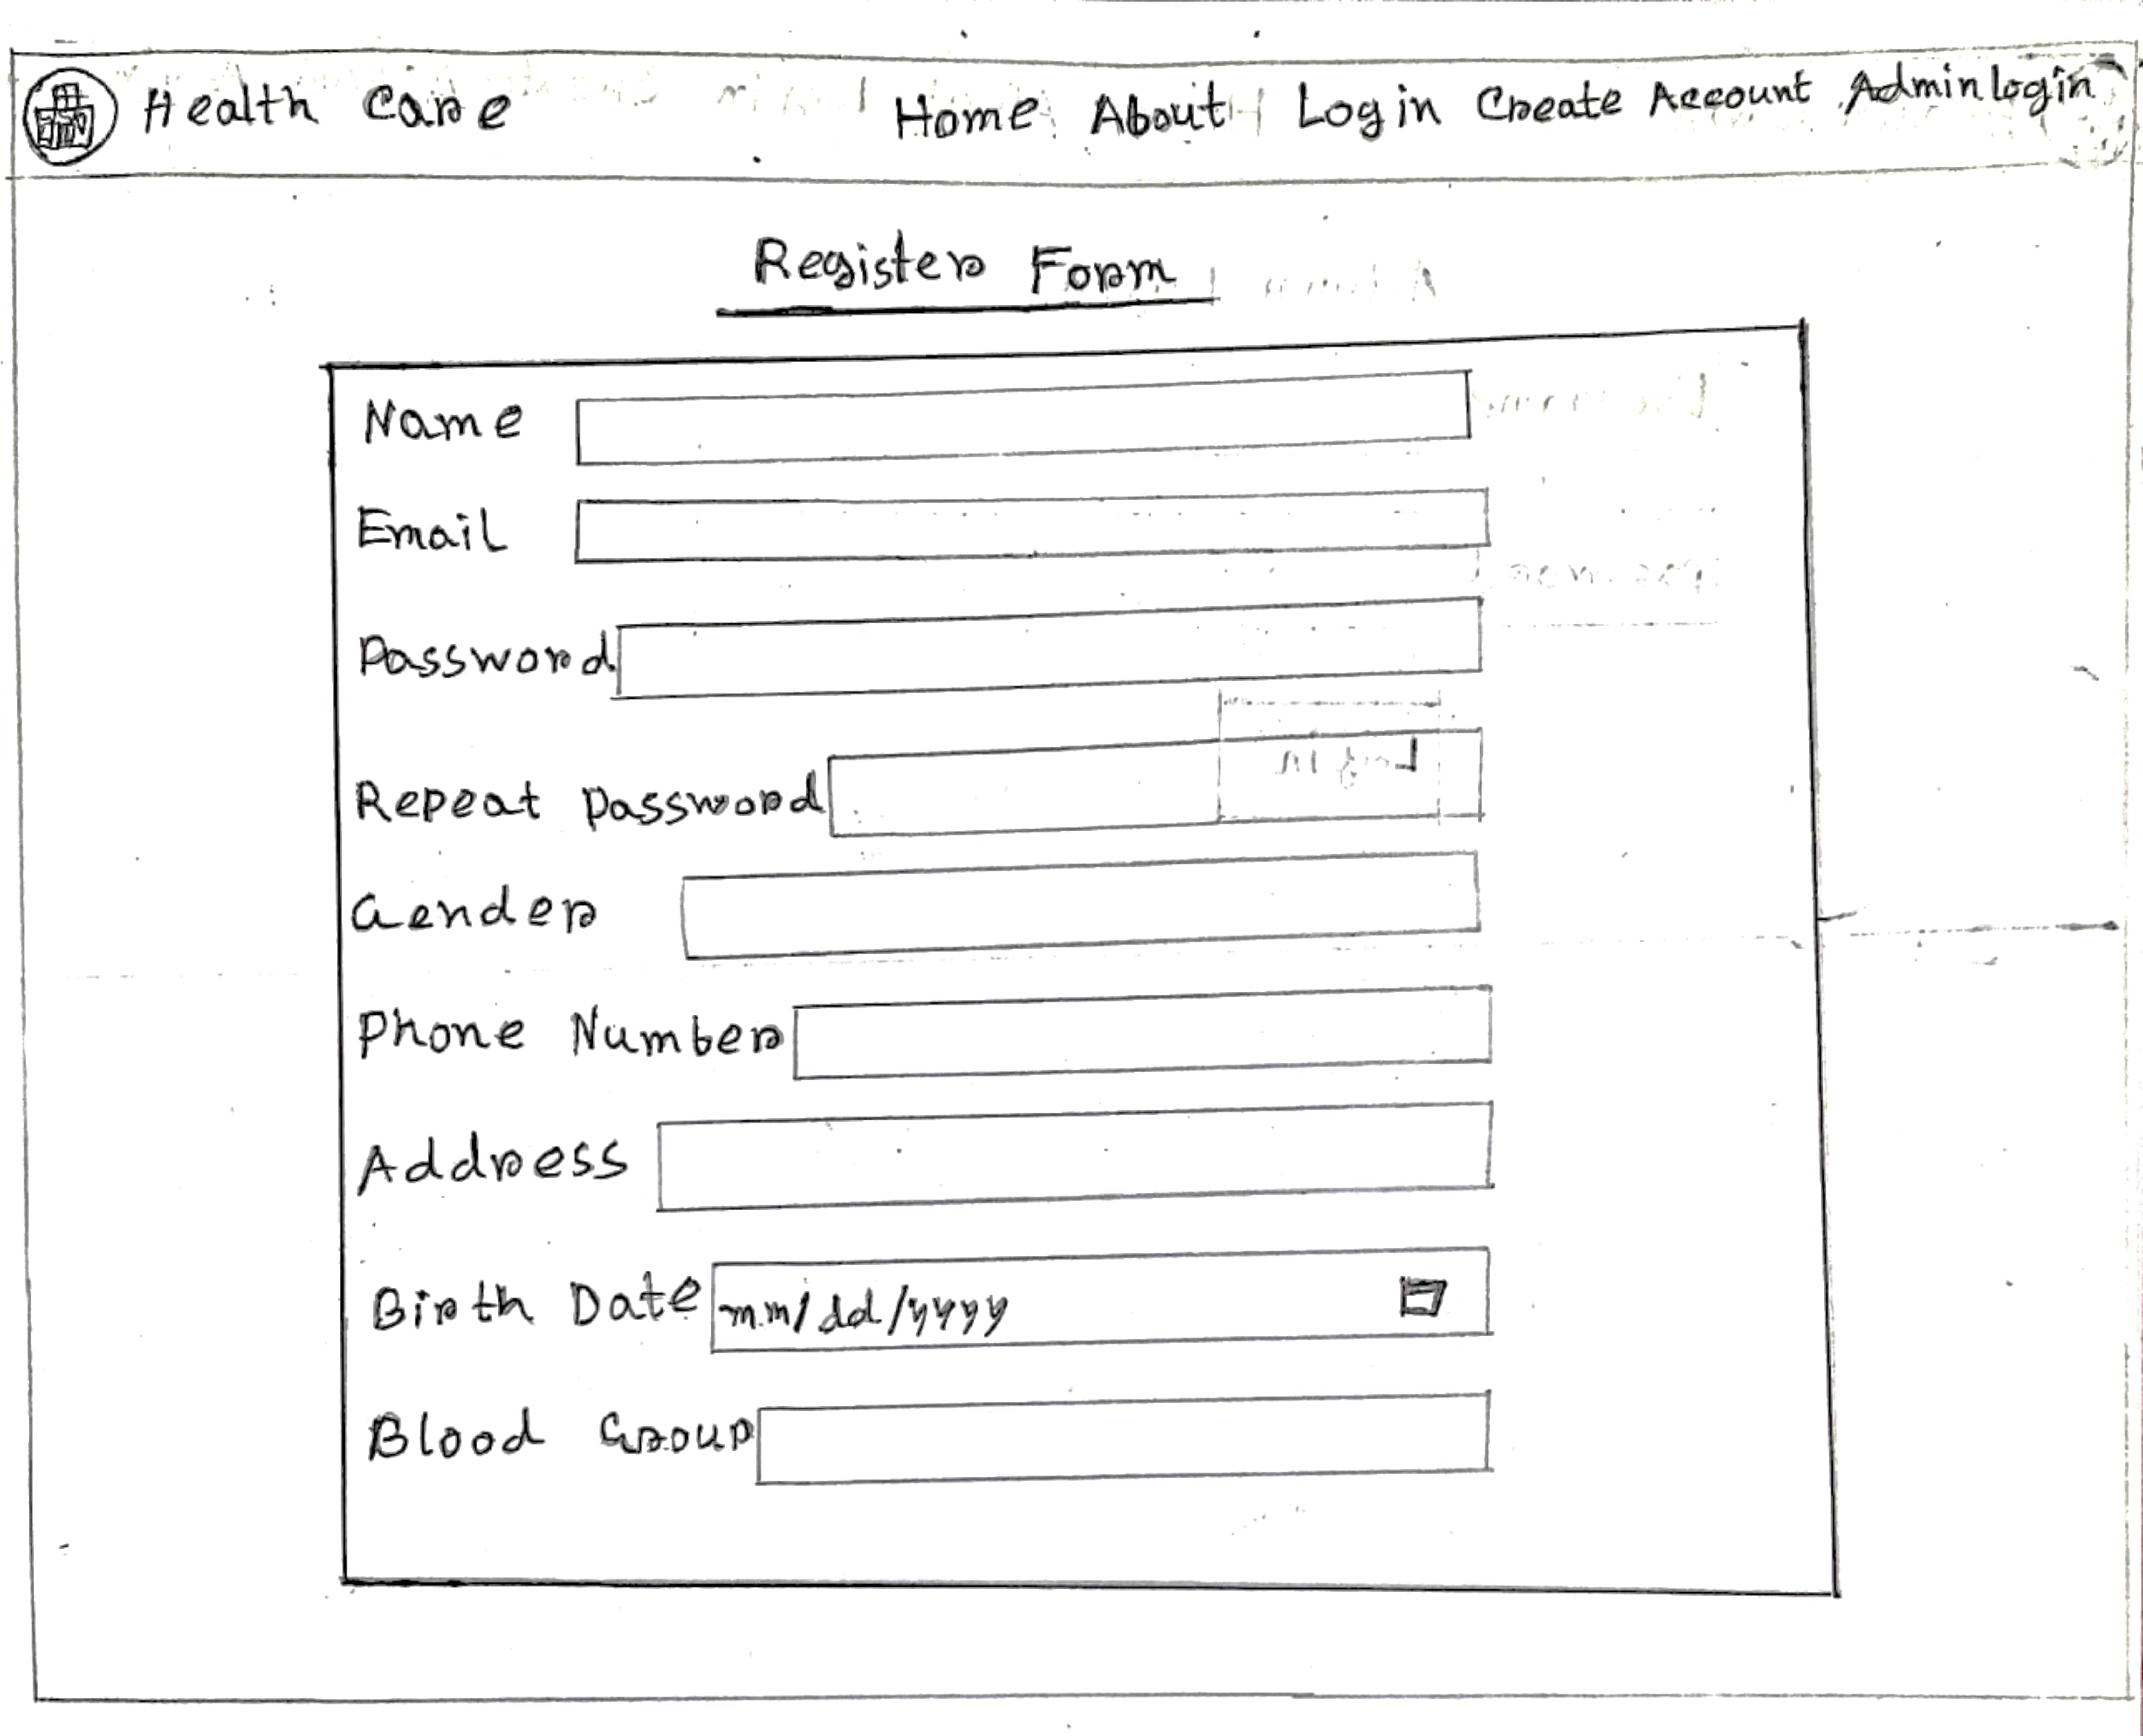 Health Care Home About Login Create Account Admin login
Register Form
Name
Email
Password
Repeat Password
Gender
Phone Number
Address
Birth Date mm/dd/yyyy
Blood Group